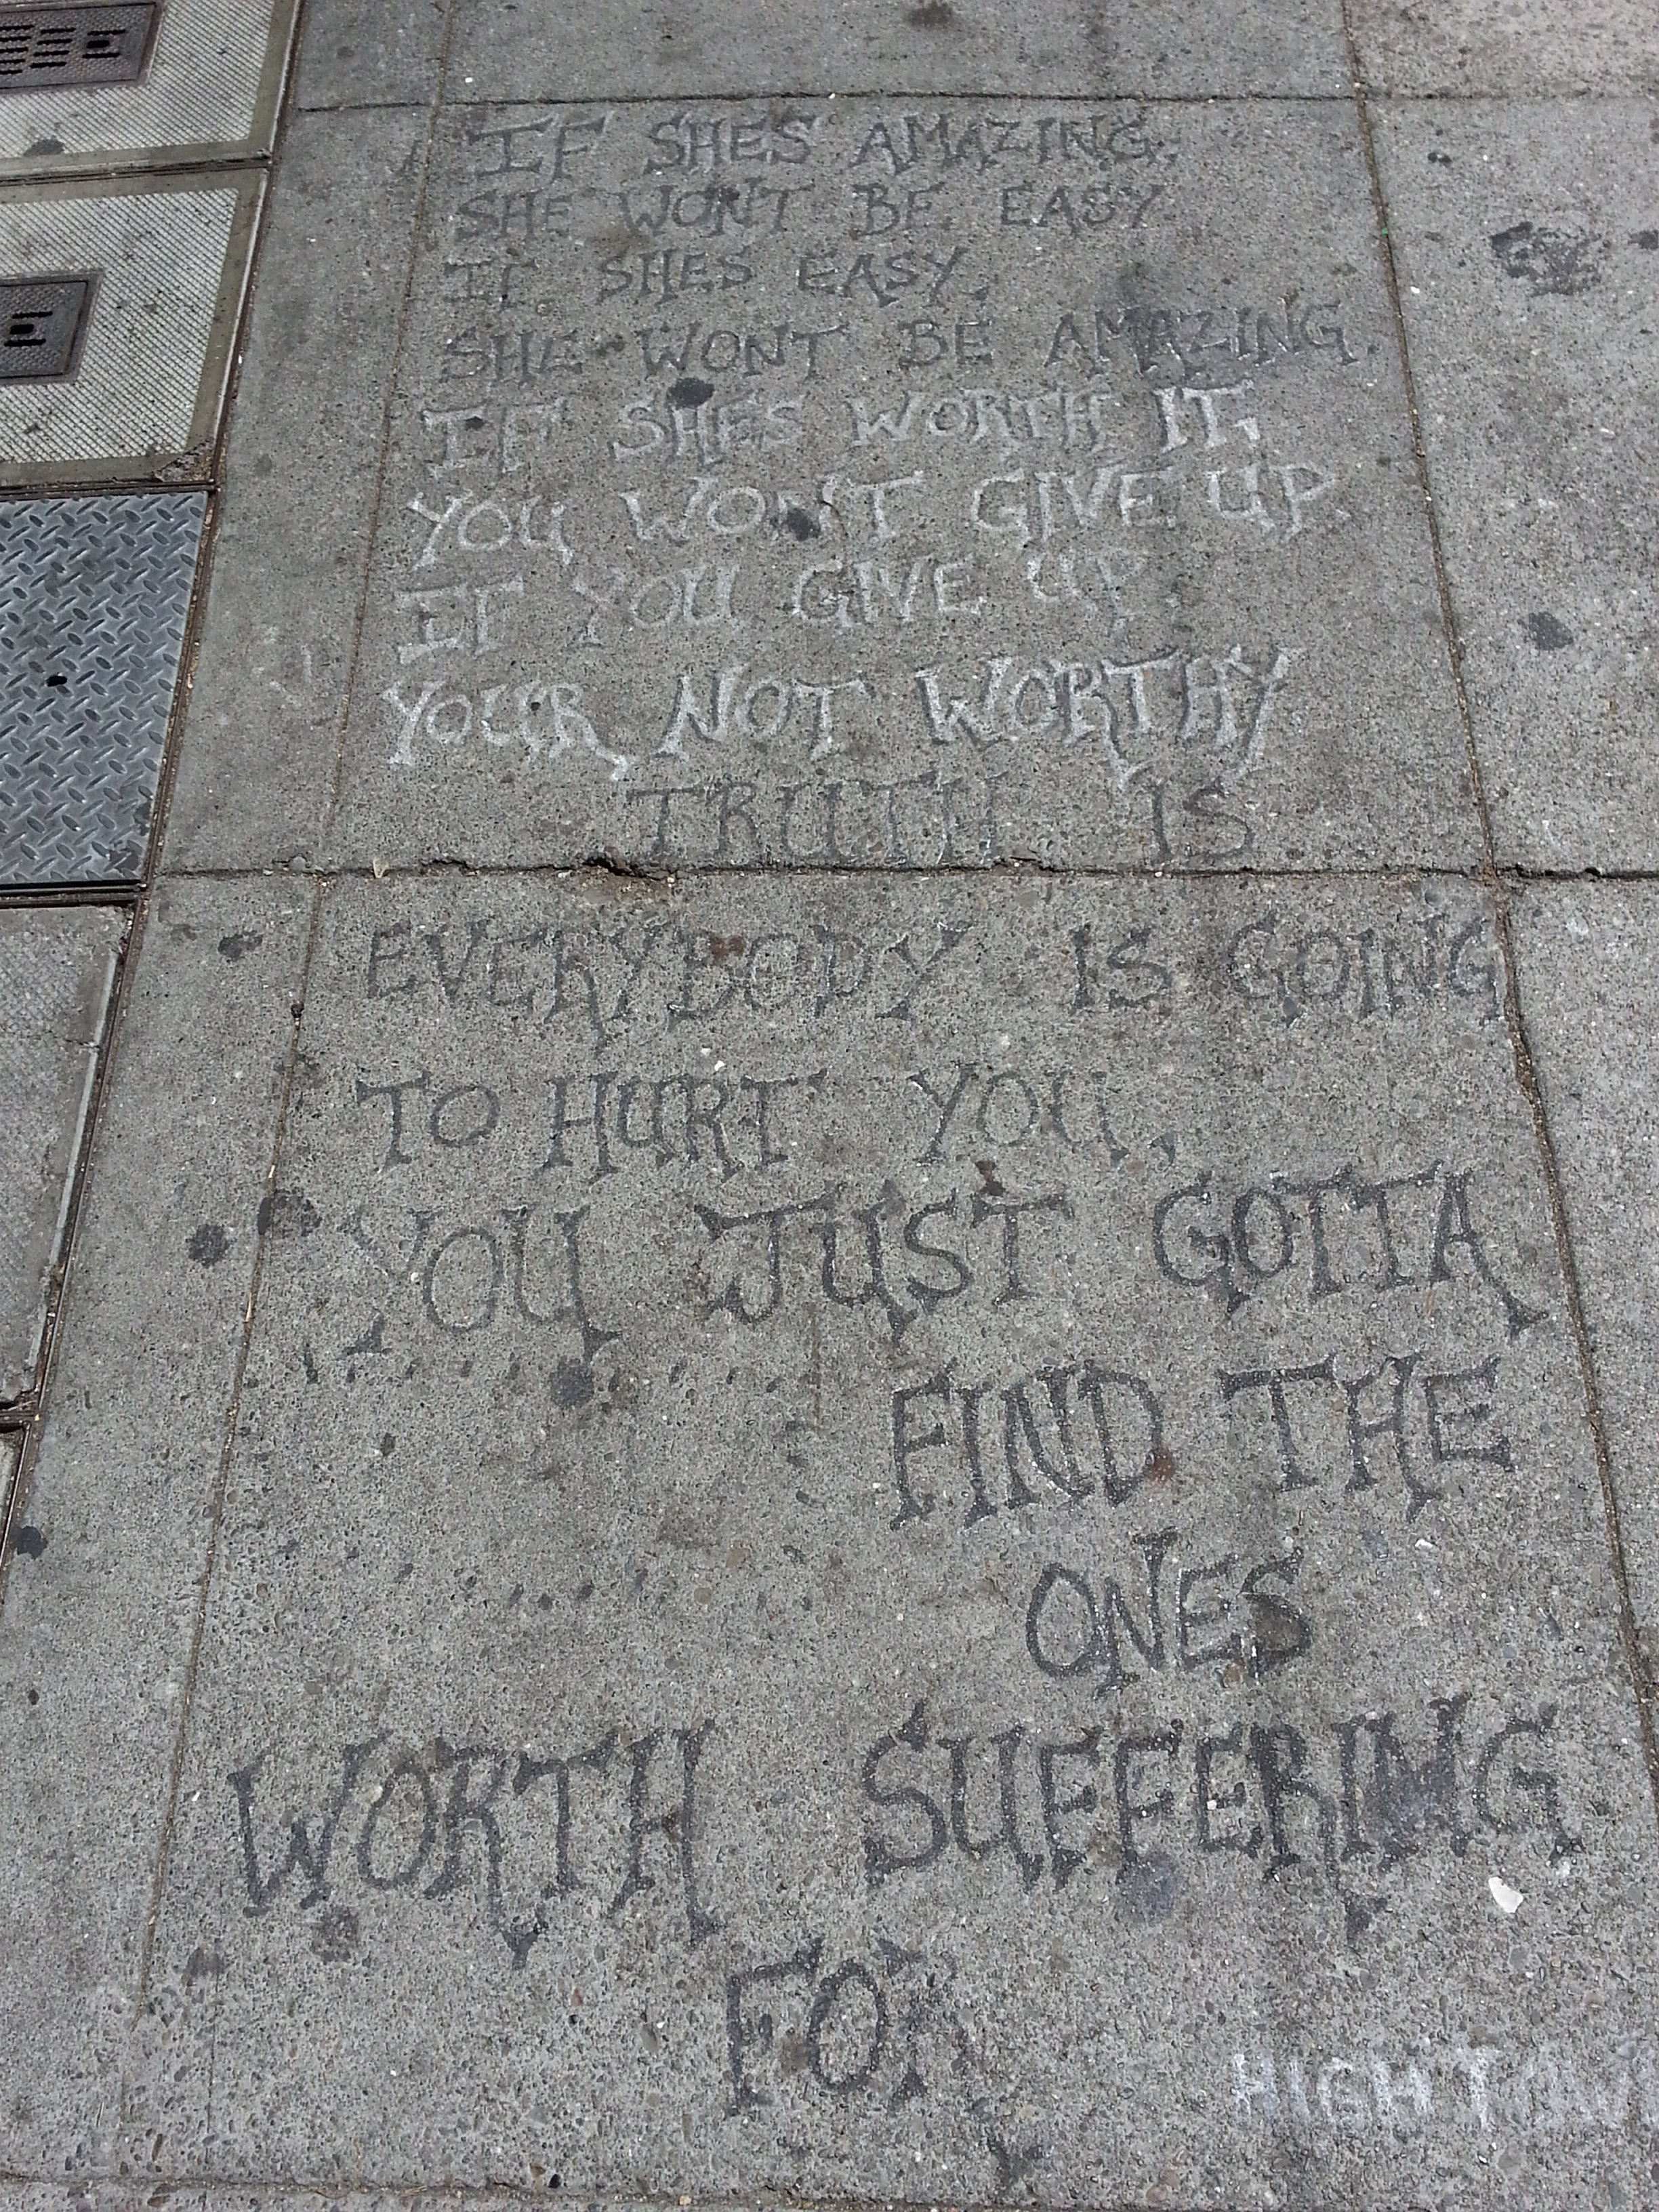 IF SHES AMAZING,
SHE WON'T BE EASY
IF SHES EASY,
SHE WONT BE AMAZING.
IF SHES WORTH IT,
YOU WON'T GIVE UP.
IF YOU GIVE UP.
YOUR NOT WORTHY
TRUTH IS
EVERYBODY IS GOING
TO HURT YOU,
YOU JUST GOTTA
FIND THE
ONES
WORTH SUFFERING
FOR
HIGH